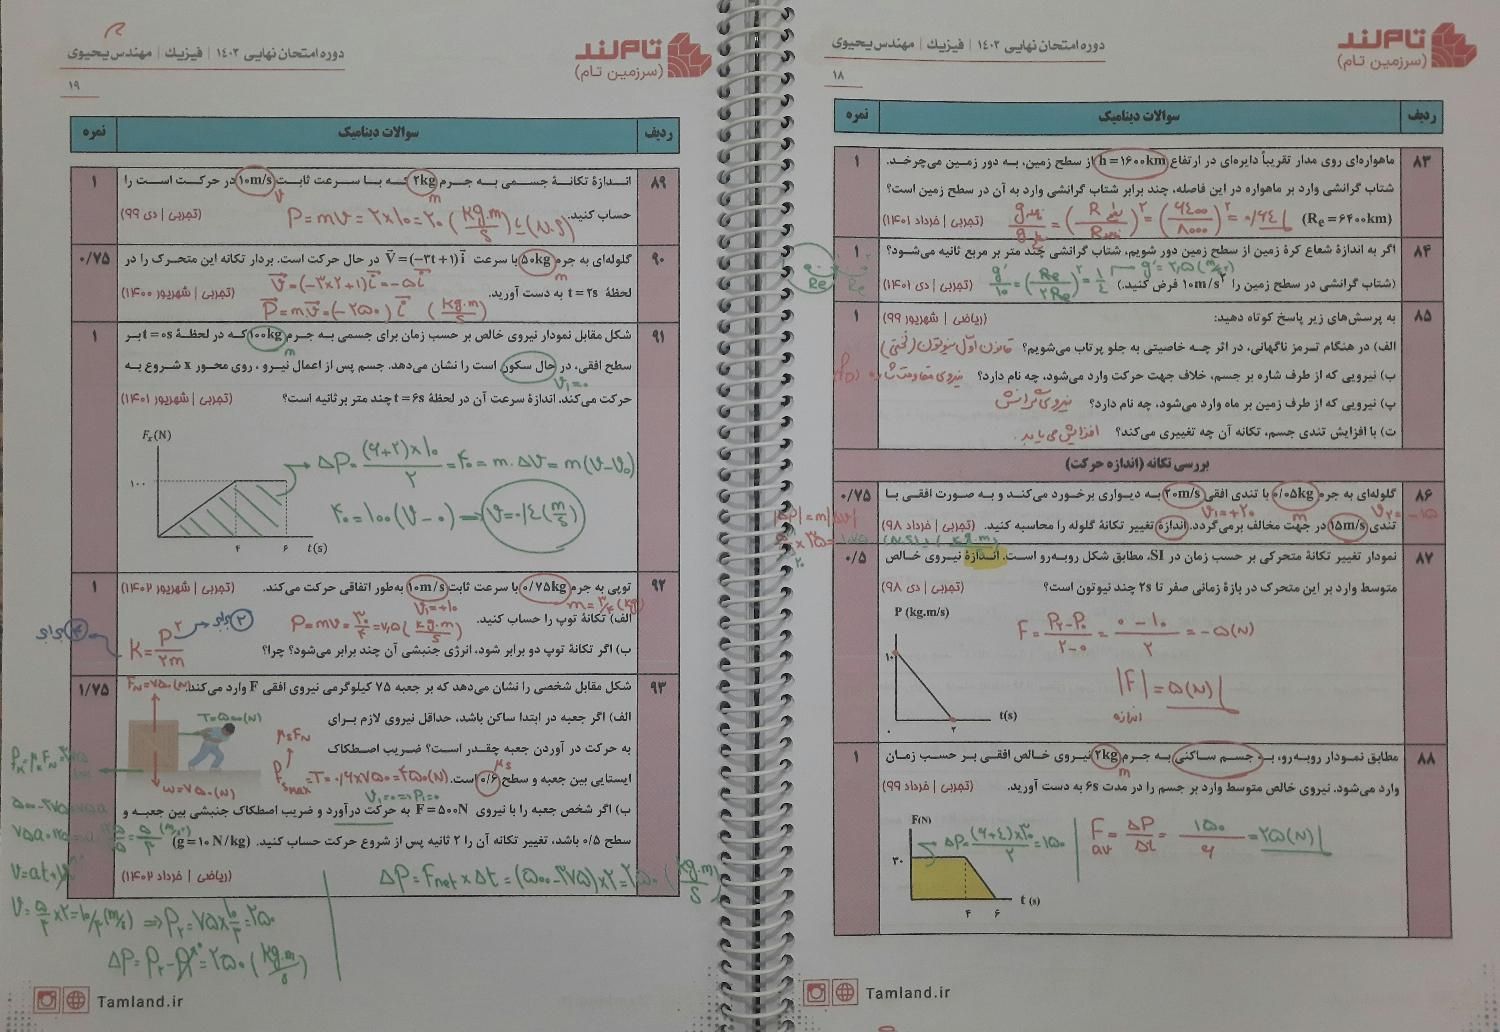 تام‌لند
(سرزمین تام)
دوره امتحان نهایی ۱۴۰۳ | فیزیک | مهندس یحیوی
۱۸
ردیف
سوالات دینامیک
نمره
۸۳
ماهواره‌ای روی مدار تقریباً دایره‌ای در ارتفاع h=۱۶۰۰km از سطح زمین، به دور زمین می‌چرخد.
۱
شتاب گرانشی وارد بر ماهواره در این فاصله، چند برابر شتاب گرانشی وارد به آن در سطح زمین است؟
(Re=۶۴۰۰km)
(تجربی | خرداد ۱۴۰۱)
۸۴
اگر به اندازهٔ شعاع کرهٔ زمین از سطح زمین دور شویم، شتاب گرانشی چند متر بر مربع ثانیه می‌شود؟
۱
(شتاب گرانشی در سطح زمین را ۱۰m/s² فرض کنید.)
(تجربی | دی ۱۴۰۱)
۸۵
به پرسش‌های زیر پاسخ کوتاه دهید:
(ریاضی | شهریور ۹۹)
۱
الف) در هنگام ترمز ناگهانی، در اثر چه خاصیتی به جلو پرتاب می‌شویم؟ قانون اول نیوتون (لختی)
ب) نیرویی که از طرف شاره بر جسم، خلاف جهت حرکت وارد می‌شود، چه نام دارد؟ نیروی مقاومت شاره (fD)
پ) نیرویی که از طرف زمین بر ماه وارد می‌شود، چه نام دارد؟ نیروی گرانش
ت) با افزایش تندی جسم، تکانه آن چه تغییری می‌کند؟ افزایش می‌یابد.
بررسی تکانه (اندازه حرکت)
۸۶
گلوله‌ای به جرم ۰/۰۵kg با تندی افقی ۲۰m/s به دیواری برخورد می‌کند و به صورت افقی با
۰/۷۵
V₁=+۲۰
m
V₂=-۱۵
تندی ۱۵m/s در جهت مخالف برمی‌گردد. اندازهٔ تغییر تکانهٔ گلوله را محاسبه کنید. (تجربی | خرداد ۹۸)
|ΔP|=m|ΔV|
۸۷
نمودار تغییر تکانهٔ متحرکی بر حسب زمان در SI، مطابق شکل روبه‌رو است. اندازهٔ نیروی خالص
۰/۵
متوسط وارد بر این متحرک در بازهٔ زمانی صفر تا ۲s چند نیوتون است؟
(تجربی | دی ۹۸)
P (kg.m/s)
۱۰
۰
۲
t(s)
F = (P₂-P₀)/(۲-۰) = (۰-۱۰)/۲ = -۵(N)
|F| = ۵(N)
اندازه
۸۸
مطابق نمودار روبه‌رو، به جسم ساکنی به جرم ۲kg نیروی خالص افقی بر حسب زمان
۱
m
وارد می‌شود. نیروی خالص متوسط وارد بر جسم را در مدت ۶s به دست آورید.
(تجربی | خرداد ۹۹)
F(N)
۳۰
۴
۶
t (s)
ΔP = (۶+۴)×۳۰/۲ = ۱۵۰
Fav = ΔP/Δt = ۱۵۰/۶ = ۲۵(N)
Tamland.ir
تام‌لند
(سرزمین تام)
دوره امتحان نهایی ۱۴۰۳ | فیزیک | مهندس یحیوی
۱۹
ردیف
سوالات دینامیک
نمره
۸۹
اندازهٔ تکانهٔ جسمی به جرم ۲kg که با سرعت ثابت ۱۰m/s در حرکت است را
۱
m
v
حساب کنید.
(تجربی | دی ۹۹)
P=mv=۲×۱۰=۲۰ (kg.m/s) یا (N.s)
۹۰
گلوله‌ای به جرم ۵۰kg با سرعت V=(-۳t+۱)i در حال حرکت است. بردار تکانه این متحرک را در
۰/۷۵
m
لحظهٔ t=۲s به دست آورید.
(تجربی | شهریور ۱۴۰۰)
V=(-۳×۲+۱)i=-۵i
P=mv=(-۲۵۰)i (kg.m/s)
۹۱
شکل مقابل نمودار نیروی خالص بر حسب زمان برای جسمی به جرم ۱۰۰kg که در لحظهٔ t=۰s بر
۱
m
سطح افقی، در حال سکون است را نشان می‌دهد. جسم پس از اعمال نیرو، روی محور x شروع به
V₁=۰
حرکت می‌کند. اندازهٔ سرعت آن در لحظهٔ t=۶s چند متر بر ثانیه است؟
(تجربی | شهریور ۱۴۰۱)
Fx(N)
۱۰۰
۴
۶
t(s)
ΔP = (۶+۲)×۱۰/۲ = ۴۰ = m.ΔV = m(V-V₀)
۴۰=۱۰۰(V-۰) ⇒ V=۰/۴(m/s)
۹۲
توپی به جرم ۰/۷۵kg با سرعت ثابت ۱۰m/s به‌طور اتفاقی حرکت می‌کند.
(تجربی | شهریور ۱۴۰۲)
۱
m=۳/۴(kg)
V₁=+۱۰
الف) تکانهٔ توپ را حساب کنید.
P=mv=۳۰/۴=۷٫۵(kg.m/s)
ب) اگر تکانهٔ توپ دو برابر شود، انرژی جنبشی آن چند برابر می‌شود؟ چرا؟
K=P²/۲m
۲ برابر
۴ برابر
۹۳
شکل مقابل شخصی را نشان می‌دهد که بر جعبه ۷۵ کیلوگرمی نیروی افقی F وارد می‌کند.
۱/۷۵
الف) اگر جعبه در ابتدا ساکن باشد، حداقل نیروی لازم برای
به حرکت در آوردن جعبه چقدر است؟ ضریب اصطکاک
ایستایی بین جعبه و سطح ۰/۶ است.
μs
μsFN
fsmax=T=۰/۶×۷۵۰=۴۵۰(N)
V₁=۰ ⇒ P₁=۰
FN=۷۵۰(N)
T=۵۰۰(N)
W=۷۵۰(N)
ب) اگر شخص جعبه را با نیروی F=۵۰۰N به حرکت درآورد و ضریب اصطکاک جنبشی بین جعبه و
سطح ۰/۵ باشد، تغییر تکانه آن را ۲ ثانیه پس از شروع حرکت حساب کنید. (g=۱۰N/kg)
(ریاضی | خرداد ۱۴۰۲)
ΔP=Fnet×Δt=(۵۰۰-۳۷۵)×۲=۲۵۰ (kg.m/s)
۵۰۰-۳۷۵=۷۵a
V=at+V₀
V=۵/۳×۲=۱۰/۳(m/s) ⇒ P₂=۷۵×۱۰/۳=۲۵۰
ΔP=P₂-P₁=۲۵۰ (kg.m/s)
Tamland.ir